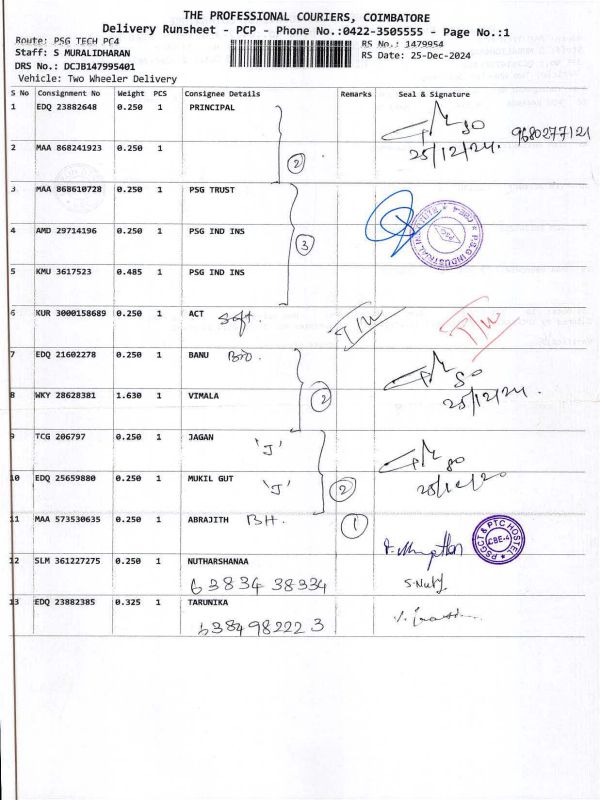 THE PROFESSIONAL COURIERS, COIMBATORE
Delivery Runsheet - PCP - Phone No.:0422-3505555 - Page No.:1
Route: PSG TECH PC4
RS No.: 1479954
Staff: S MURALIDHARAN
RS Date: 25-Dec-2024
DRS No.: DCJB147995401
Vehicle: Two Wheeler Delivery
S No Consignment No Weight PCS Consignee Details Remarks Seal & Signature
1 EDQ 23882648 0.250 1 PRINCIPAL
25/12/24. 9680277121
2 MAA 868241923 0.250 1
2
3 MAA 868610728 0.250 1 PSG TRUST
4 AMD 29714196 0.250 1 PSG IND INS
3
5 KMU 3617523 0.485 1 PSG IND INS
6 KUR 3000158689 0.250 1 ACT
7 EDQ 21602278 0.250 1 BANU Bio.
8 WKY 28628381 1.630 1 VIMALA
2
25/12/24.
9 TCG 206797 0.250 1 JAGAN 'J'
10 EDQ 25659880 0.250 1 MUKIL GUT 'J'
2
11 MAA 573530635 0.250 1 ABRAJITH BH. 1
PSGCT & PTC HOSTEL CBE-4
12 SLM 361227275 0.250 1 NUTHARSHANAA
63834 38334
13 EDQ 23882385 0.325 1 TARUNIKA
6384982223